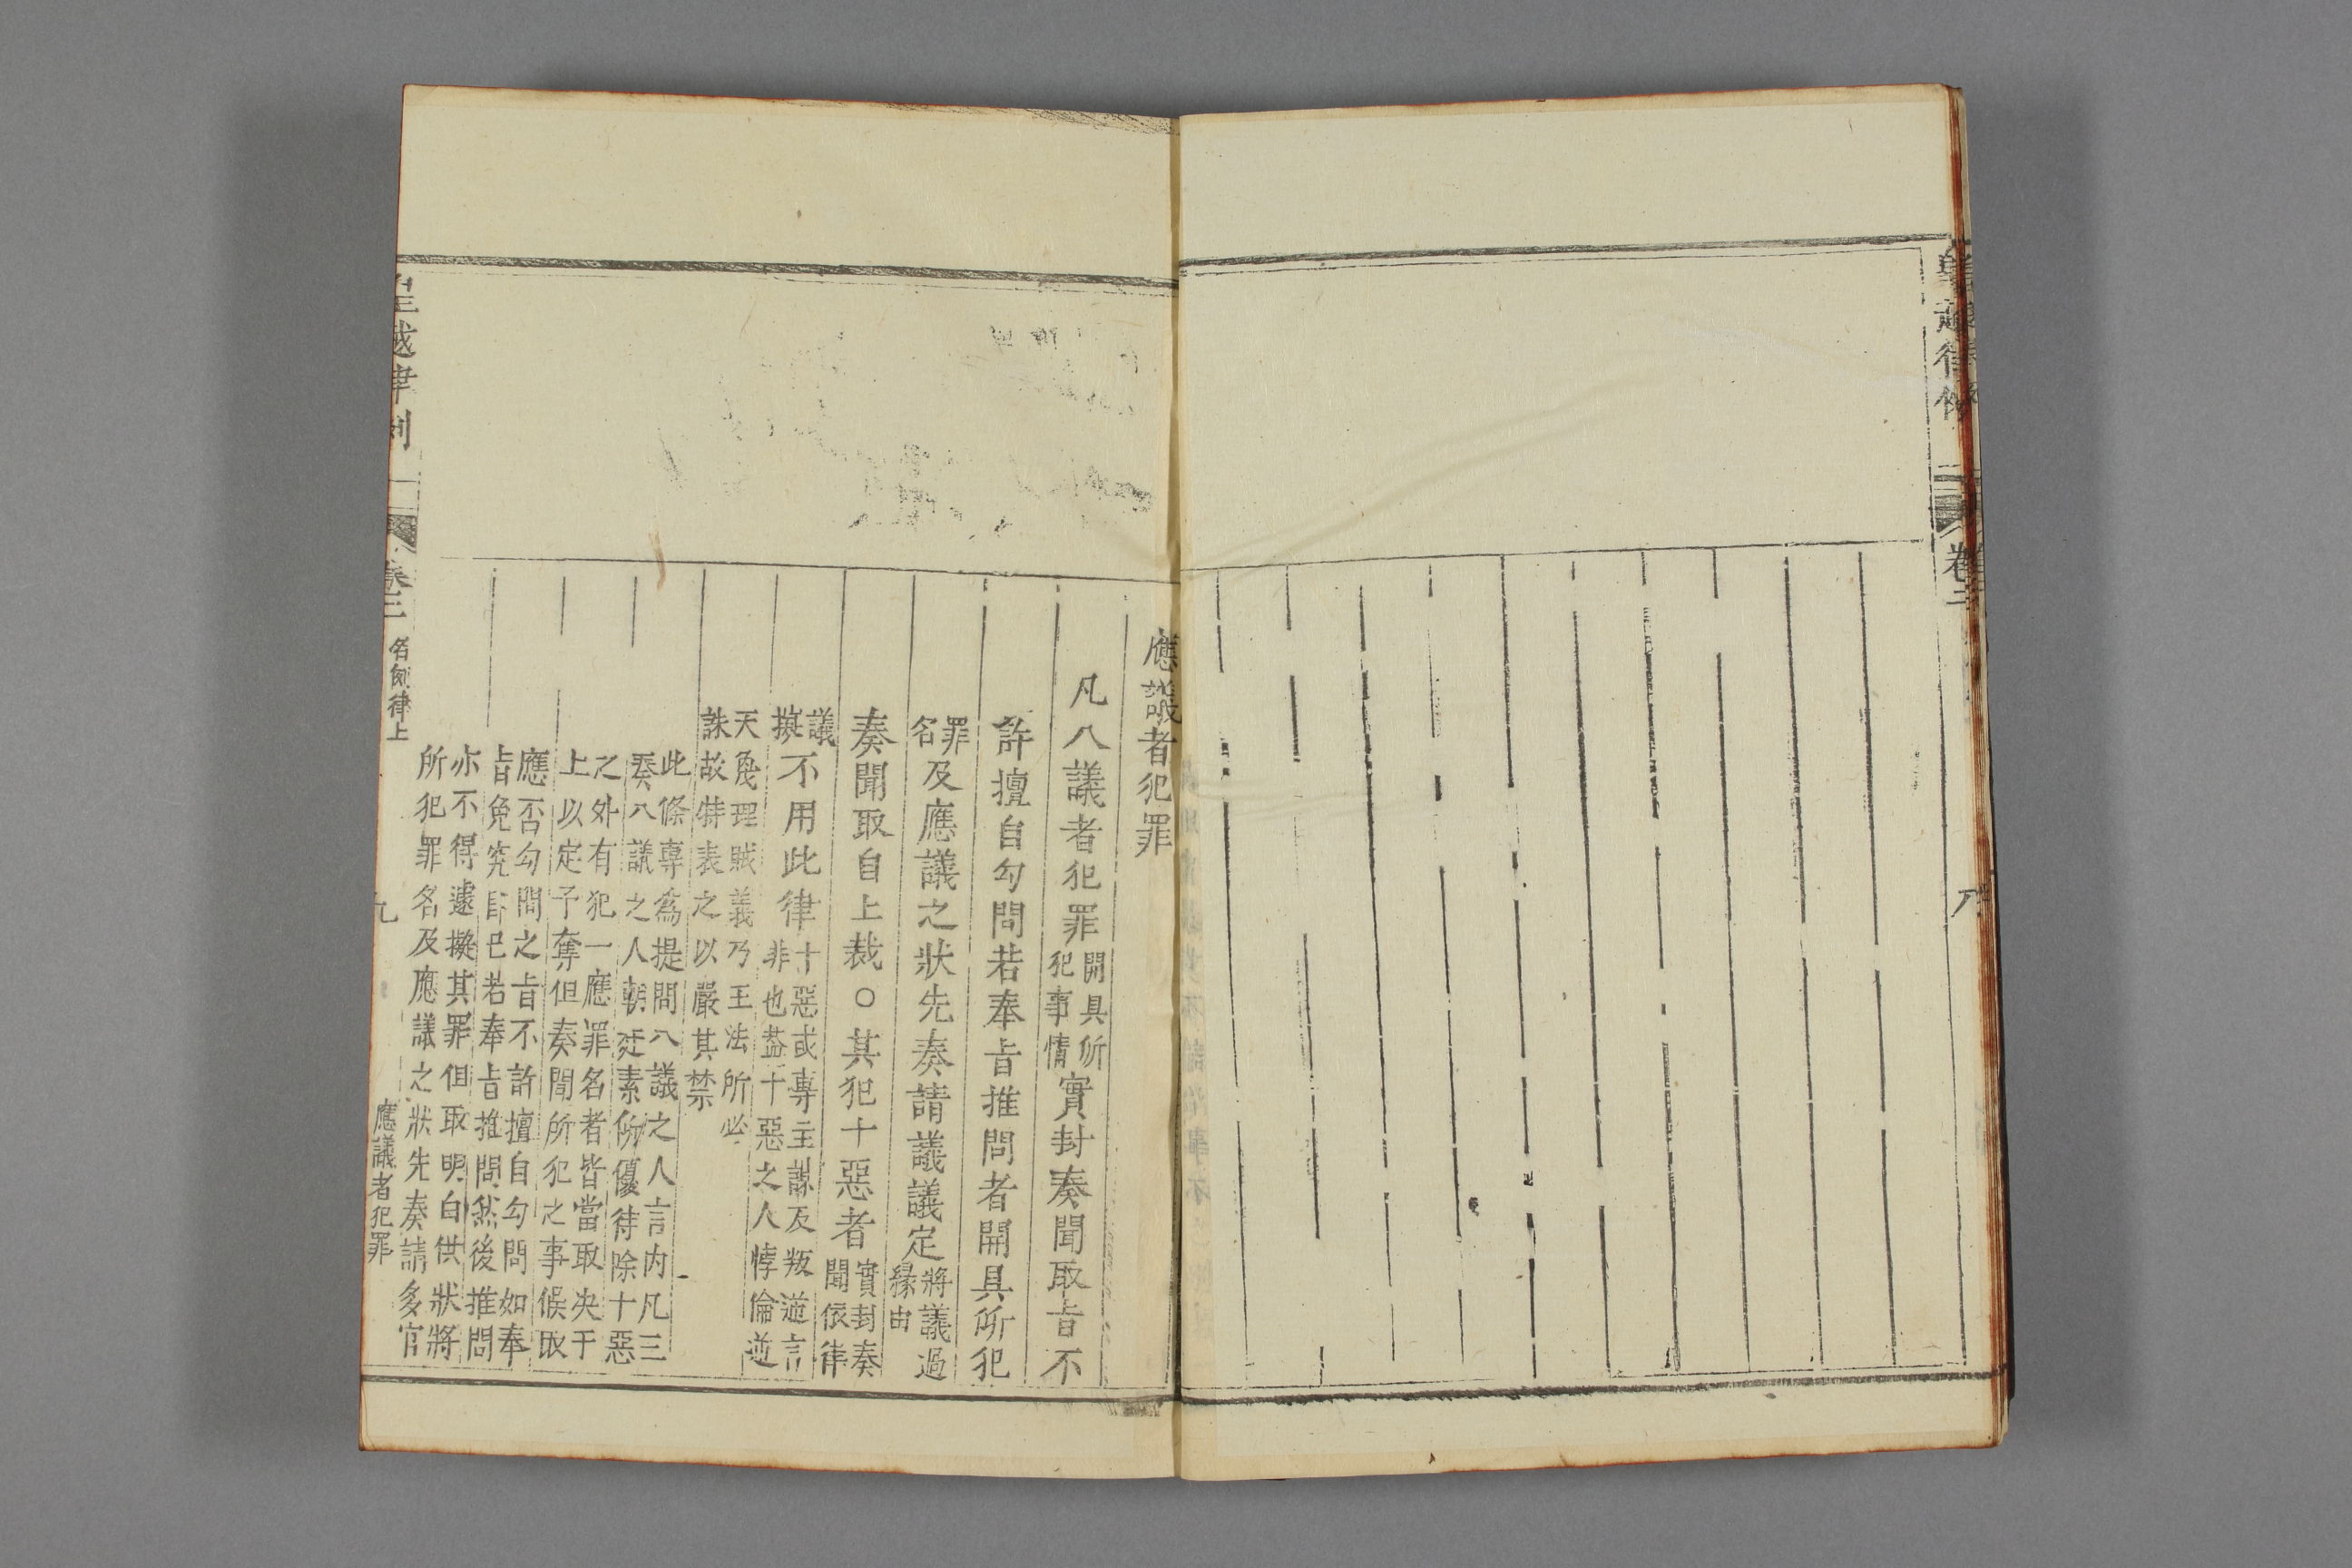 皇越律例
卷
八
應議者犯罪
凡八議者犯罪開具所犯事情實封奏聞取旨不
許擅自勾問若奉旨推問者開具所犯
罪名及應議之狀先奏請議議定將議過緣由
奏聞取自上裁○其犯十惡者實封奏聞依律
議擬不用此律十惡或專主謀反叛逆言
非也葢十惡之人悖倫逆
天廢理賊義乃王法所必
誅故特表之以嚴其禁
此條專爲提問八議之人言内凡三
奏八議之人朝廷素所優待除十惡
之外有犯一應罪名者皆當取决于
上以定予奪但奏聞所犯之事候取
應否勾問之旨不許擅自勾問如奉
旨免究則已若奉旨推問然後推問
亦不得遽擬其罪但取明白供狀將
所犯罪名及應議之狀先奏請多官
皇越律例
卷三
名例律上
九
應議者犯罪